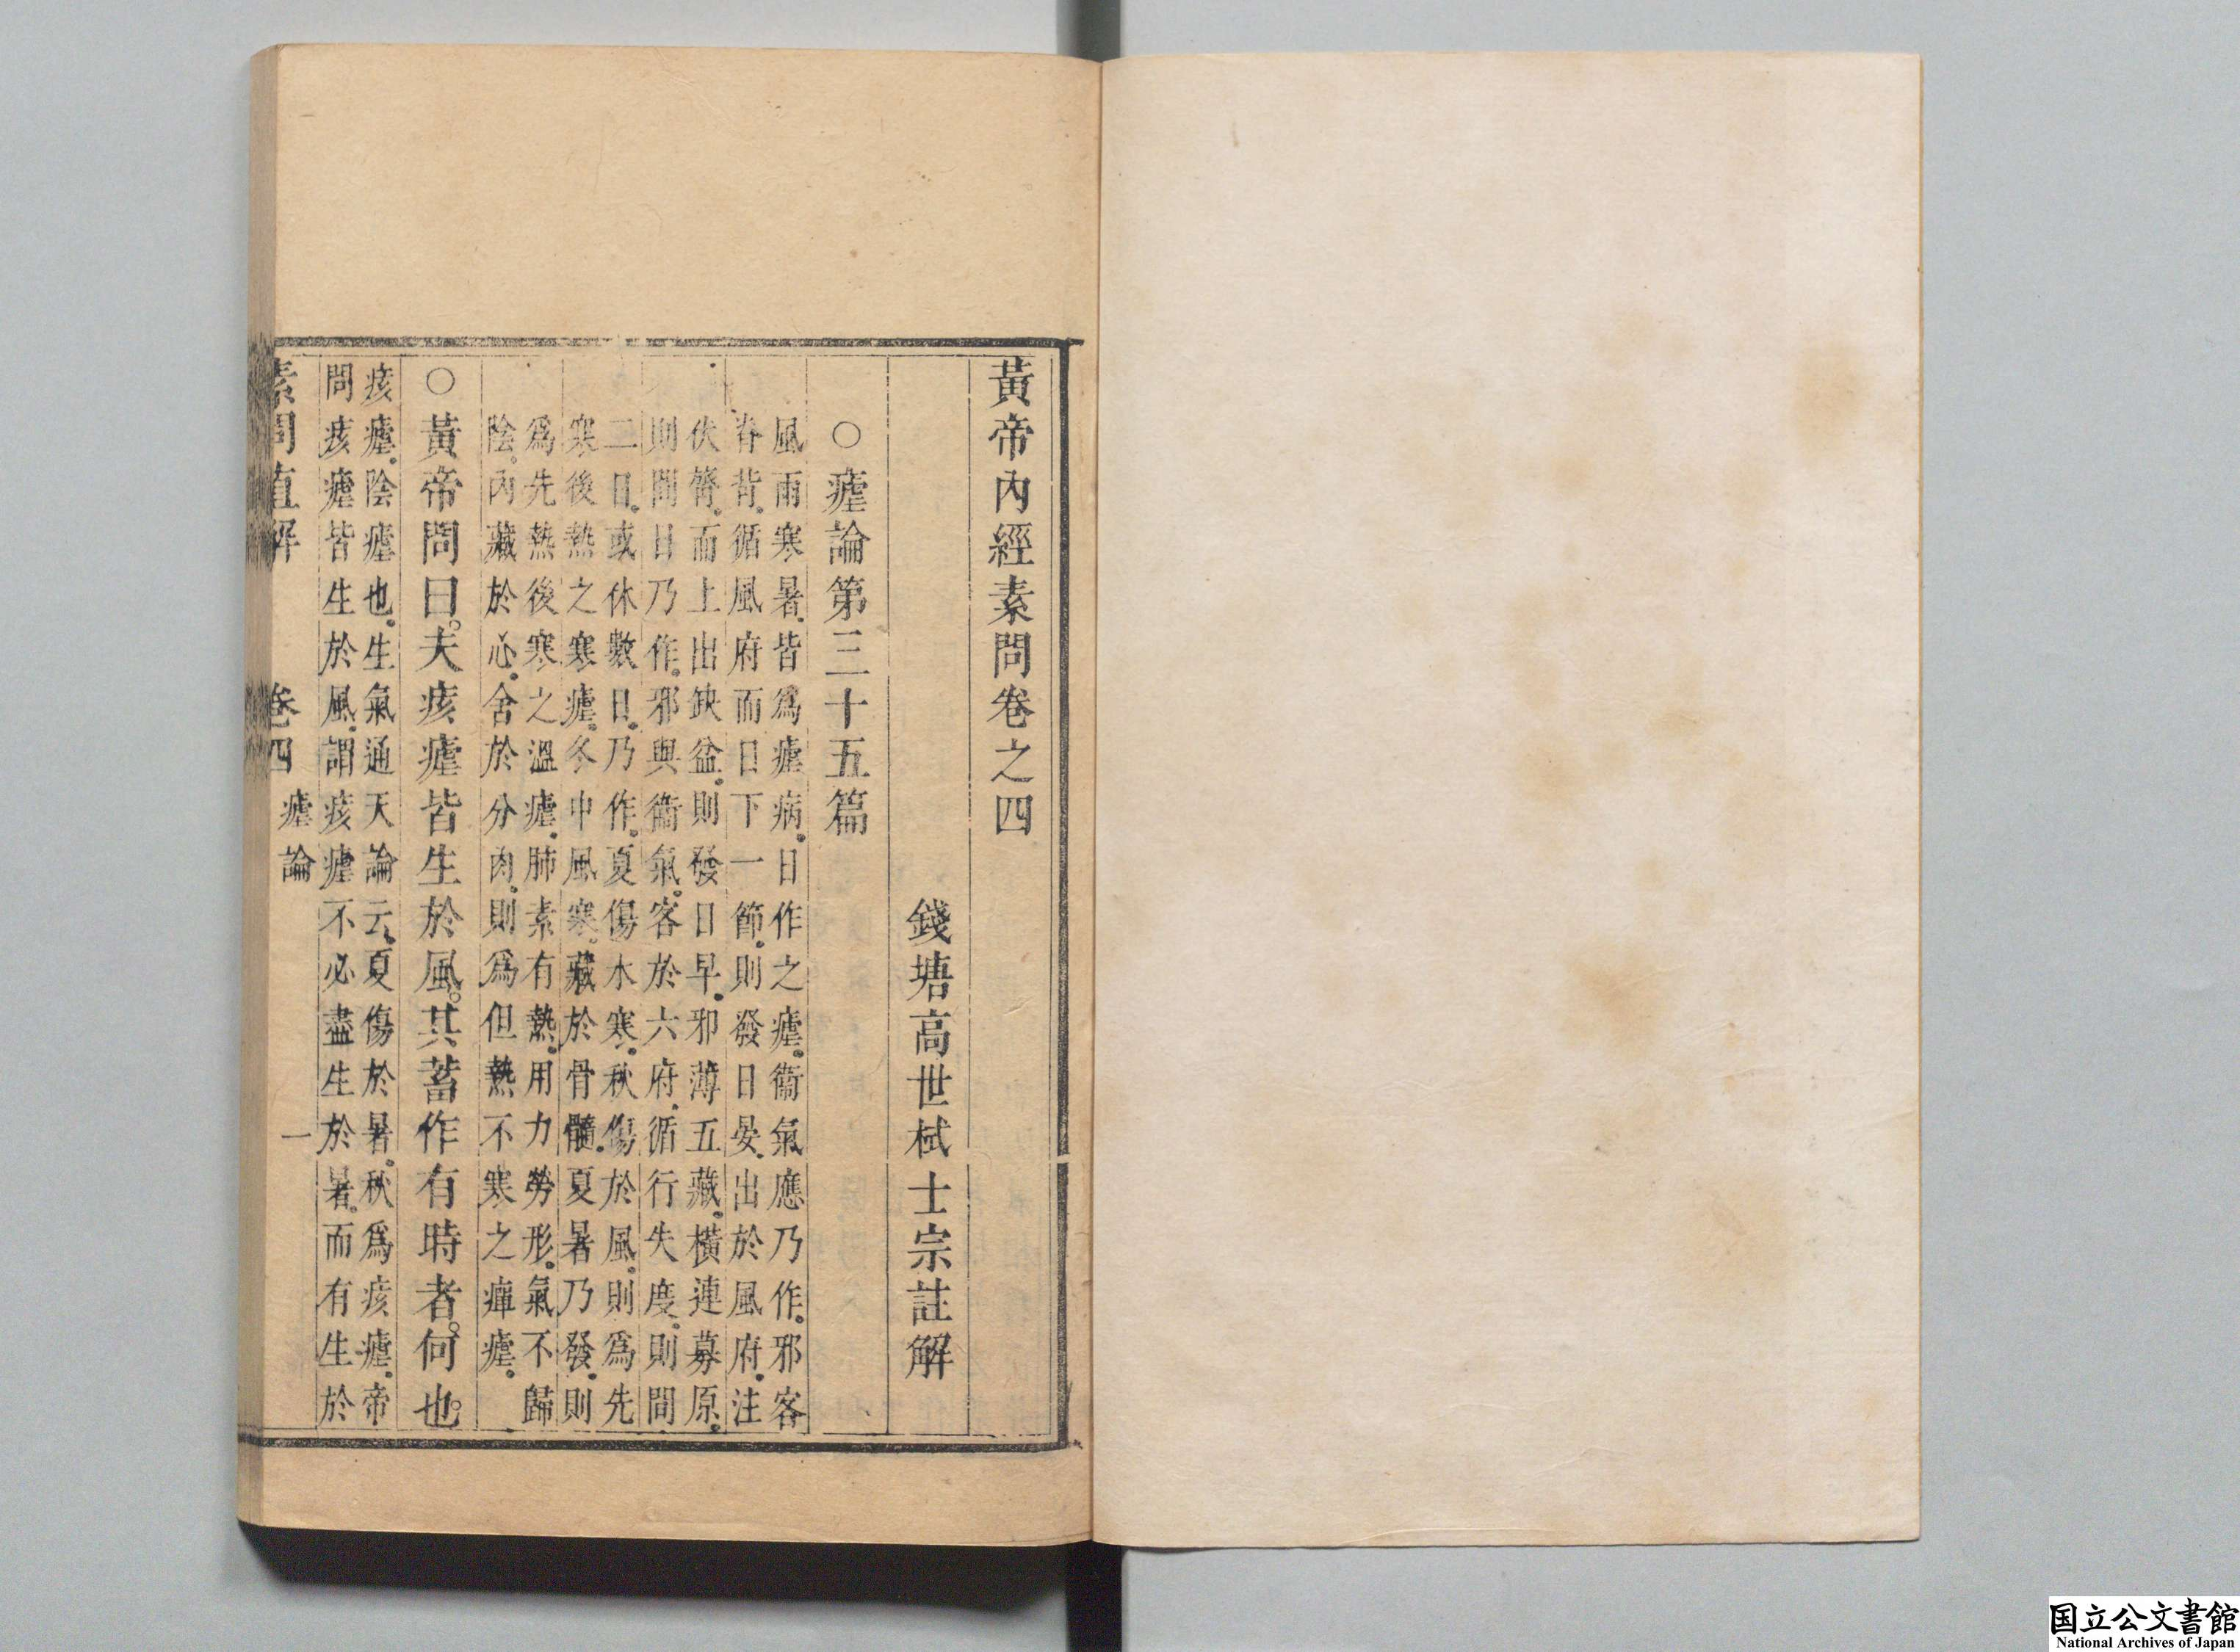 黃帝內經素問卷之四
錢塘高世栻士宗註解
○瘧論第三十五篇
風雨寒暑皆爲瘧病日作之瘧衞氣應乃作邪客
脊背循風府而日下一節則發日晏出於風府注
伏膂而上出缺盆則發日早邪薄五藏橫連募原
則間日乃作邪與衞氣客於六府循行失度則間
二日或休數日乃作夏傷水寒秋傷於風則爲先
寒後熱之寒瘧冬中風寒藏於骨髓夏暑乃發則
爲先熱後寒之溫瘧肺素有熱用力勞形氣不歸
陰內藏於心舍於分肉則爲但熱不寒之癉瘧
○黃帝問曰夫痎瘧皆生於風其蓄作有時者何也
痎瘧陰瘧也生氣通天論云夏傷於暑秋爲痎瘧帝
問痎瘧皆生於風謂痎瘧不必盡生於暑而有生於
素問直解 卷四 瘧論 一
国立公文書館
National Archives of Japan